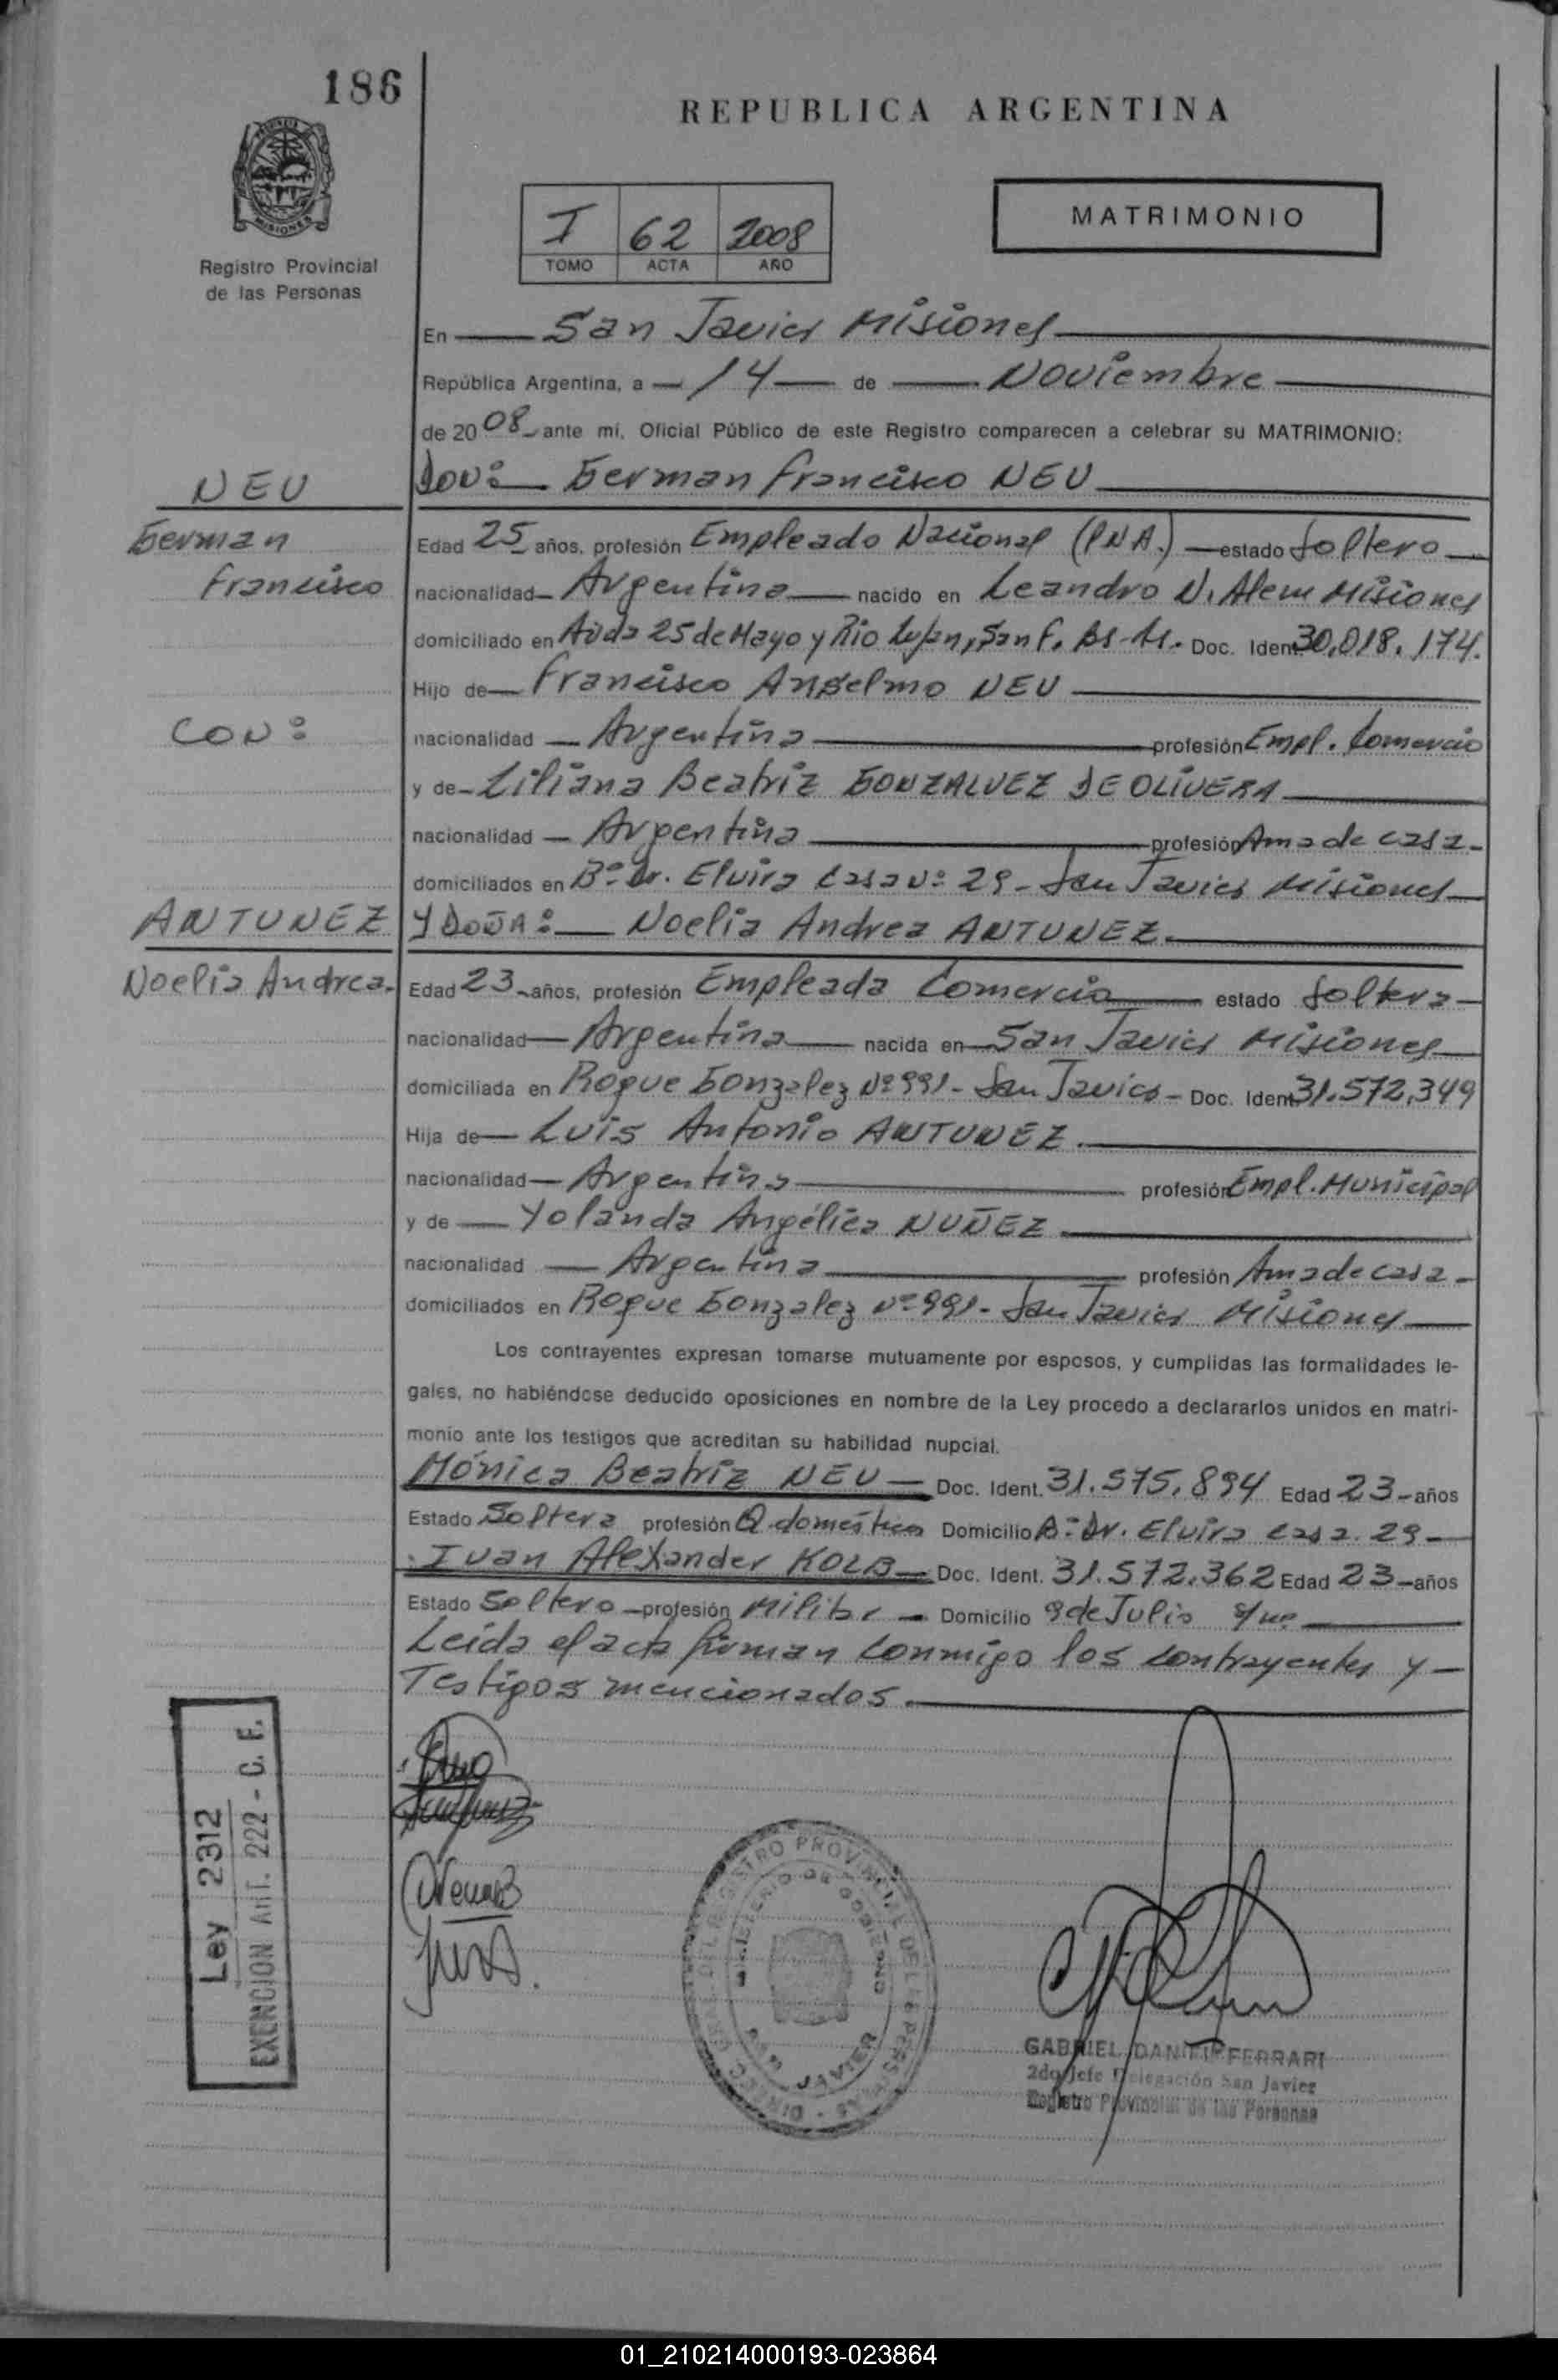 186
REPUBLICA ARGENTINA
MISIONES
Registro Provincial
de las Personas
I 62 2008
TOMO ACTA AÑO
MATRIMONIO
En San Javier Misiones
República Argentina, a 14 de Noviembre
de 2008 ante mí, Oficial Público de este Registro comparecen a celebrar su MATRIMONIO:
NEU
Don: German Francisco NEU
German
Francisco
Edad 25 años, profesión Empleado Nacional (PNA.) estado Soltero
nacionalidad Argentina nacido en Leandro N. Alem Misiones
domiciliado en Avda 25 de Mayo y Rio Lujan, San F. Bs-As. Doc. Ident 30.018.174.
Hijo de Francisco Anselmo NEU
CON:
nacionalidad Argentina profesión Empl. Comercio
y de Liliana Beatriz GONZALVEZ DE OLIVERA
nacionalidad Argentina profesión Ama de casa
domiciliados en Bº Dr. Elvira casa Nº 29 - San Javier Misiones
ANTUNEZ
Y DOÑA: Noelia Andrea ANTUNEZ
Noelia Andrea.
Edad 23 años, profesión Empleada Comercio estado Soltera
nacionalidad Argentina nacida en San Javier Misiones
domiciliada en Roque Gonzalez Nº 991 - San Javier - Doc. Ident 31.572.349
Hija de Luis Antonio ANTUNEZ.
nacionalidad Argentina profesión Empl. Municipal
y de Yolanda Angélica NUÑEZ
nacionalidad Argentina profesión Ama de casa
domiciliados en Roque Gonzalez Nº 991 - San Javier Misiones
Los contrayentes expresan tomarse mutuamente por esposos, y cumplidas las formalidades le-
gales, no habiéndose deducido oposiciones en nombre de la Ley procedo a declararlos unidos en matri-
monio ante los testigos que acreditan su habilidad nupcial.
Mónica Beatriz NEU Doc. Ident. 31.575.894 Edad 23 años
Estado Soltera profesión Q. domésticos Domicilio Bº Dr. Elvira casa 29
Ivan Alexander KOLB Doc. Ident. 31.572.362 Edad 23 años
Estado Soltero profesión Militar Domicilio 9 de Julio s/nº
Leida el acta firman conmigo los contrayentes y
Testigos mencionados.
Ley 2312
EXENCION ART. 222 - C. F.
DIRECC. GRAL. DEL REGISTRO PROVINCIAL DE LAS PERSONAS
MINISTERIO DE GOBIERNO
SAN JAVIER
GABRIEL DANIEL FERRARI
2do Jefe Delegación San Javier
Registro Provincial de las Personas
01_210214000193-023864